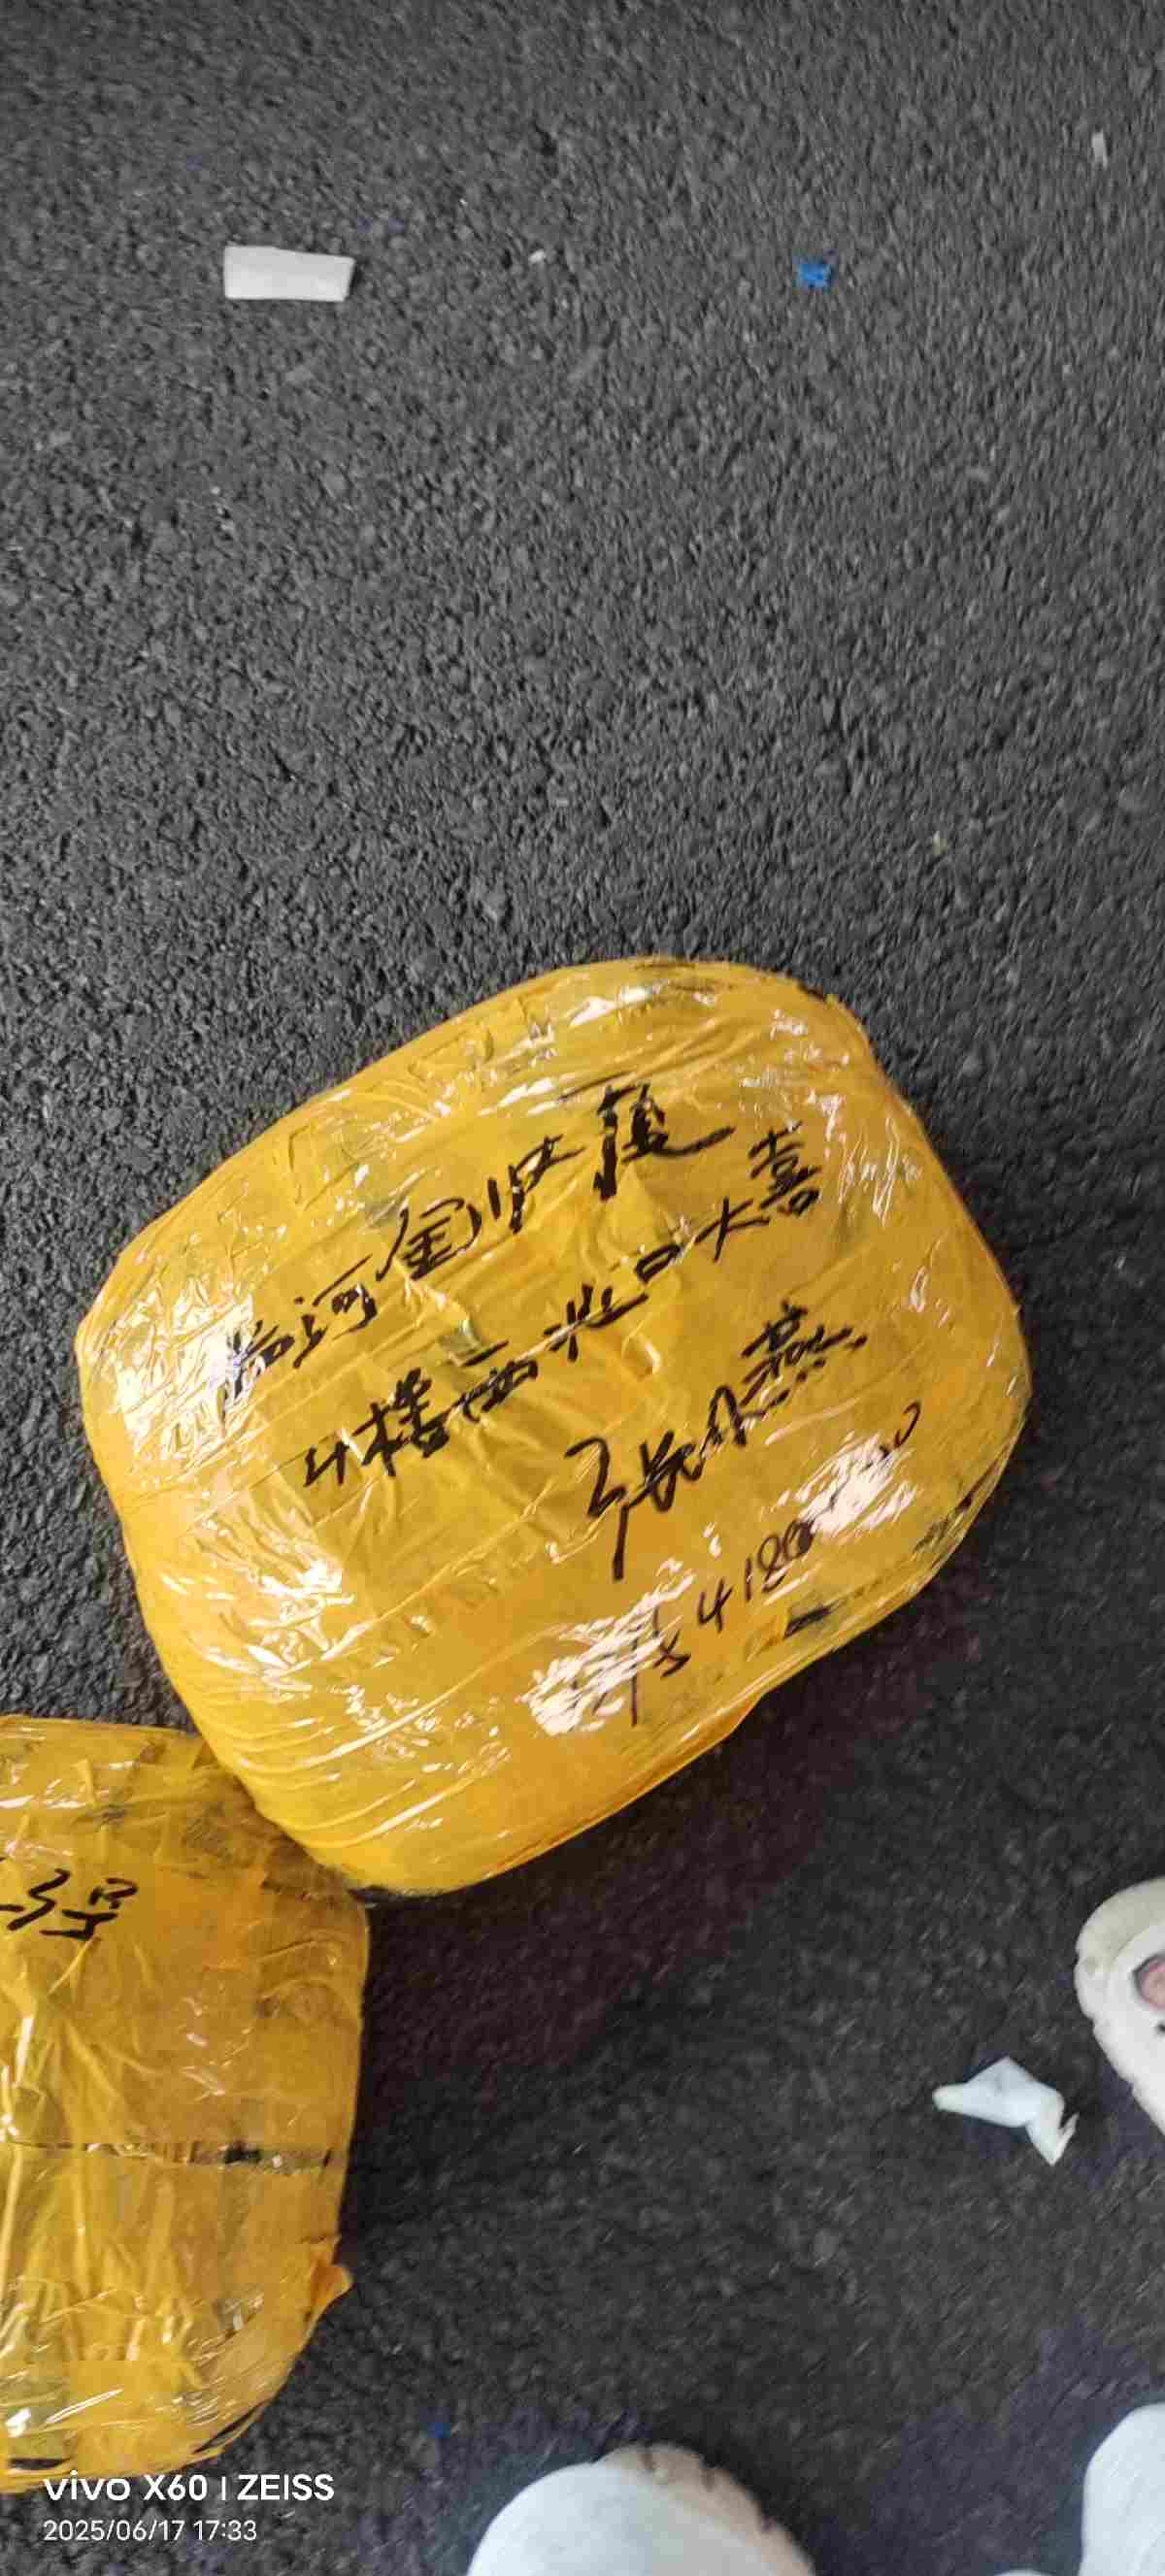 临河金川大厦
4楼西北口大喜
张小燕
件 4180
号
vivo X60 | ZEISS
2025/06/17 17:33